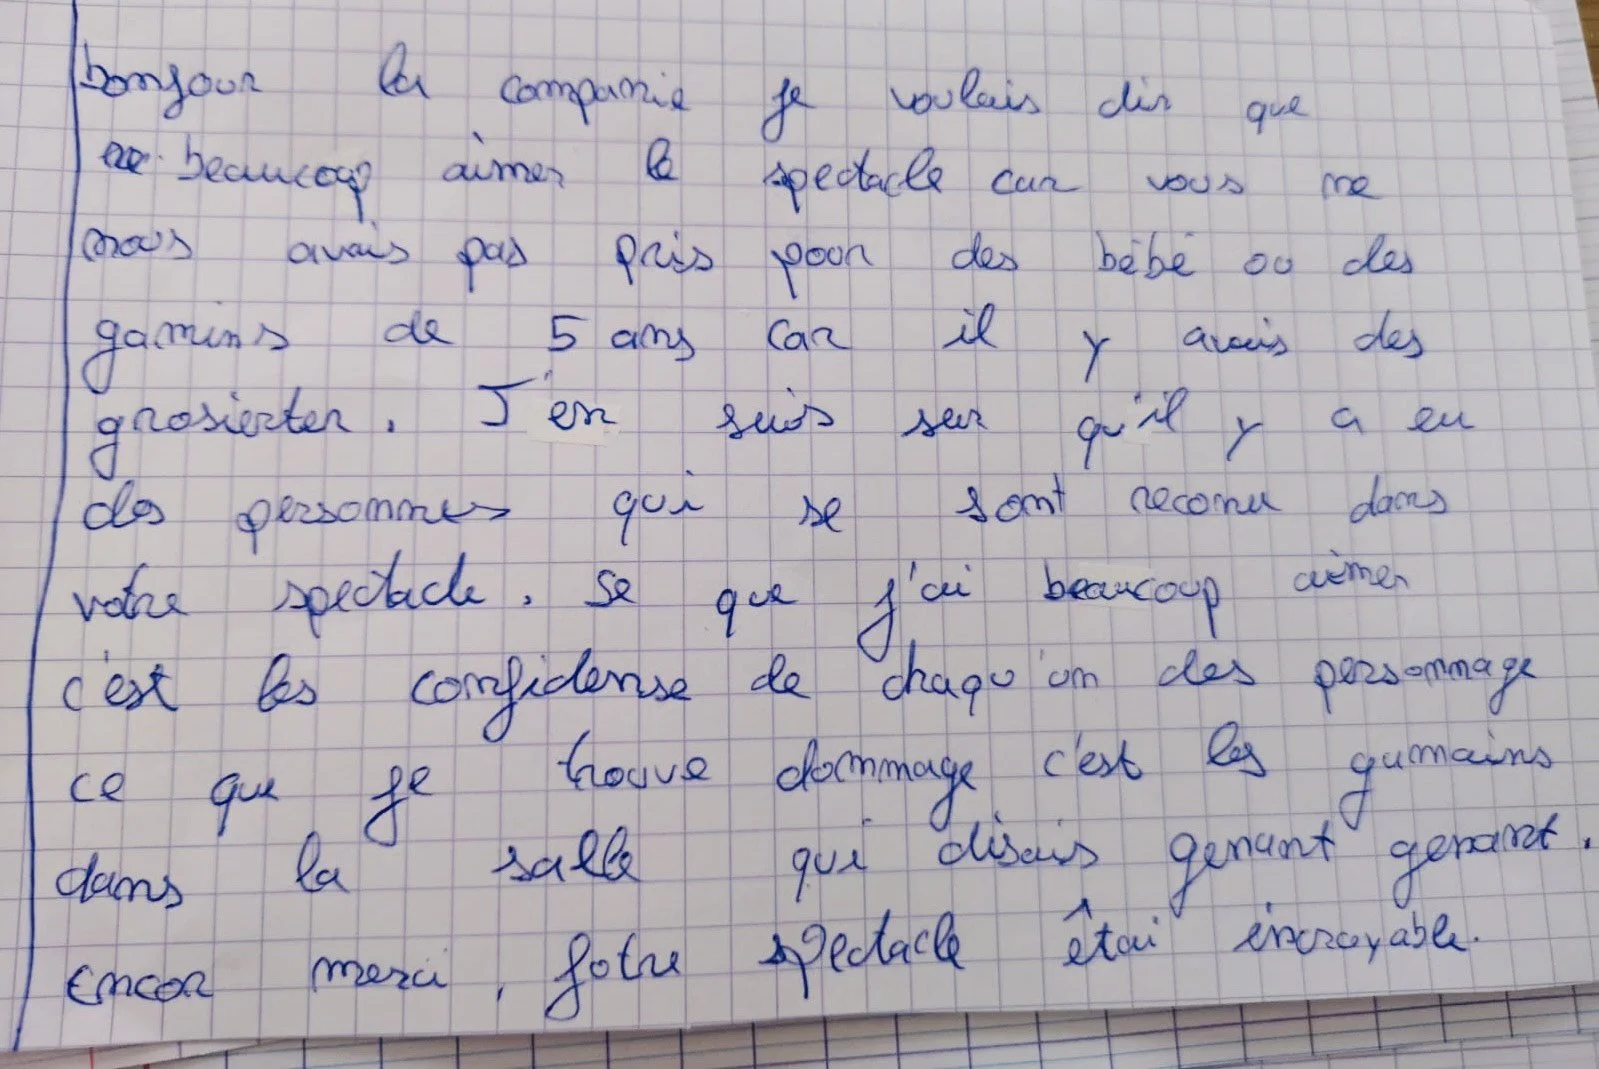 bonjour la companie je voulais dir que
beaucoup aimer le spectacle car vous ne
nous avais pas pris pour des bébé ou des
gamins de 5 ans car il y avais des
grosierter. J'en suis sur qu'il y a eu
des personnes qui se sont reconu dans
votre spectacle. Se que j'ai beaucoup aimer
c'est les confidense de chaqu'un des personnage
ce que je trouve dommage c'est les gumains
dans la salle qui disais genant genant.
Encor merci, fotre spectacle êtai incroyable.